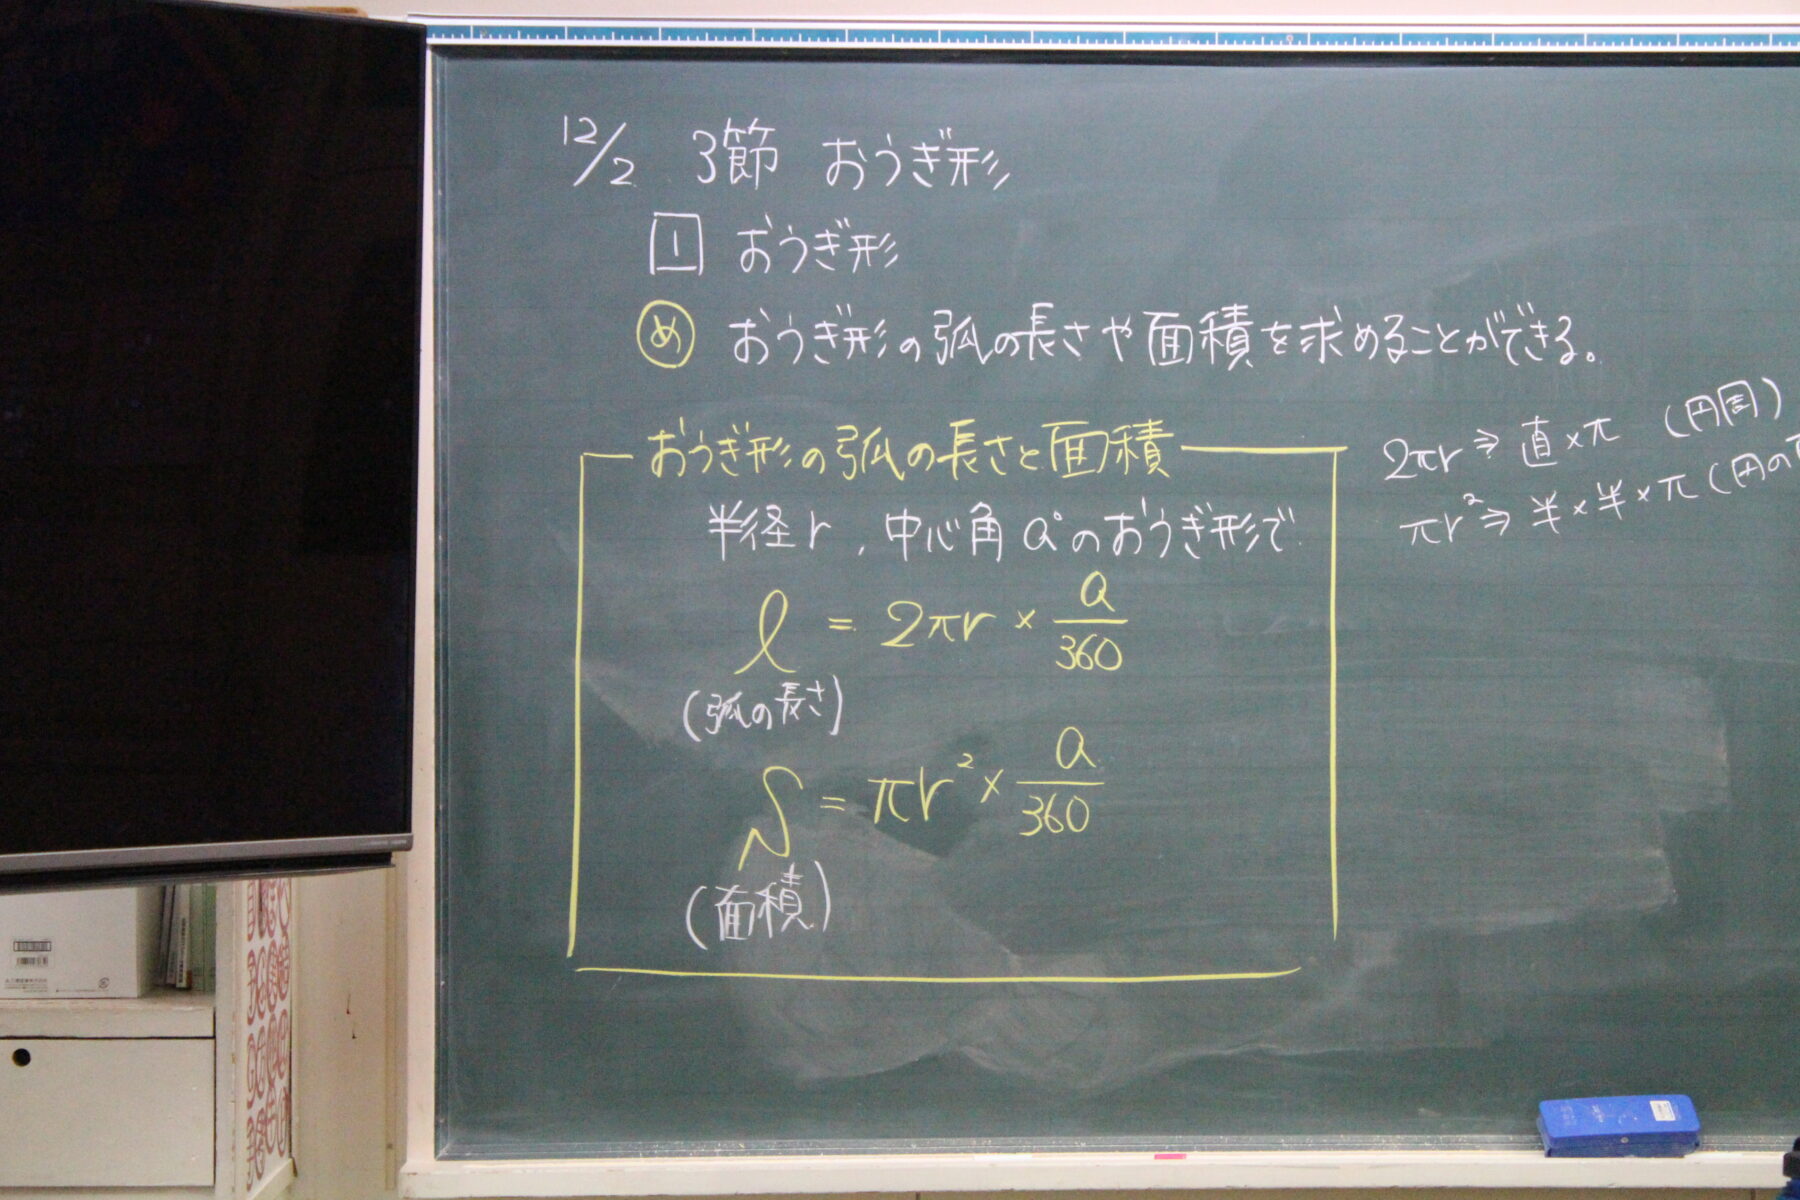 12/2 3節 おうぎ形
1 おうぎ形
め おうぎ形の弧の長さや面積を求めることができる。
おうぎ形の弧の長さと面積
半径r, 中心角a°のおうぎ形で
l = 2πr × a/360
(弧の長さ)
S = πr² × a/360
(面積)
2πr ⇒ 直×π (円周)
πr² ⇒ 半×半×π (円の